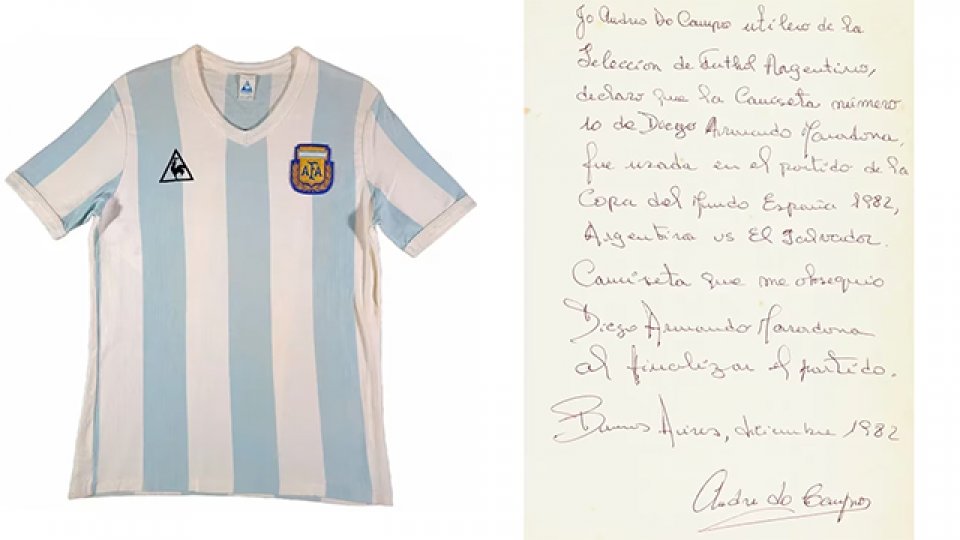 AFA
Yo Andres Do Campo utilero de la
Selección de Futbol Argentino,
declaro que la Camiseta número
10 de Diego Armando Maradona,
fue usada en el partido de la
Copa del Mundo España 1982,
Argentina vs El Salvador.
Camiseta que me obsequio
Diego Armando Maradona
al finalizar el partido.
Buenos Aires, diciembre 1982
Andres do Campo